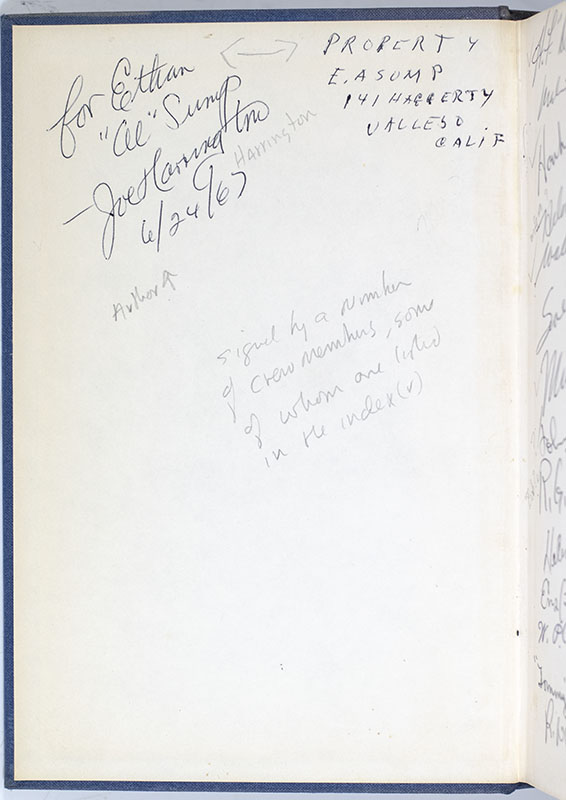 for Ethan
"Al" Sump
— Joe Harrington
6/24/67
Harrington
Author
PROPERTY
E. A SUMP
141 HAGGERTY
VALLESO
CALIF
signed by a number
of crew members, some
of whom are listed
in the index (✓)
"Tommy"